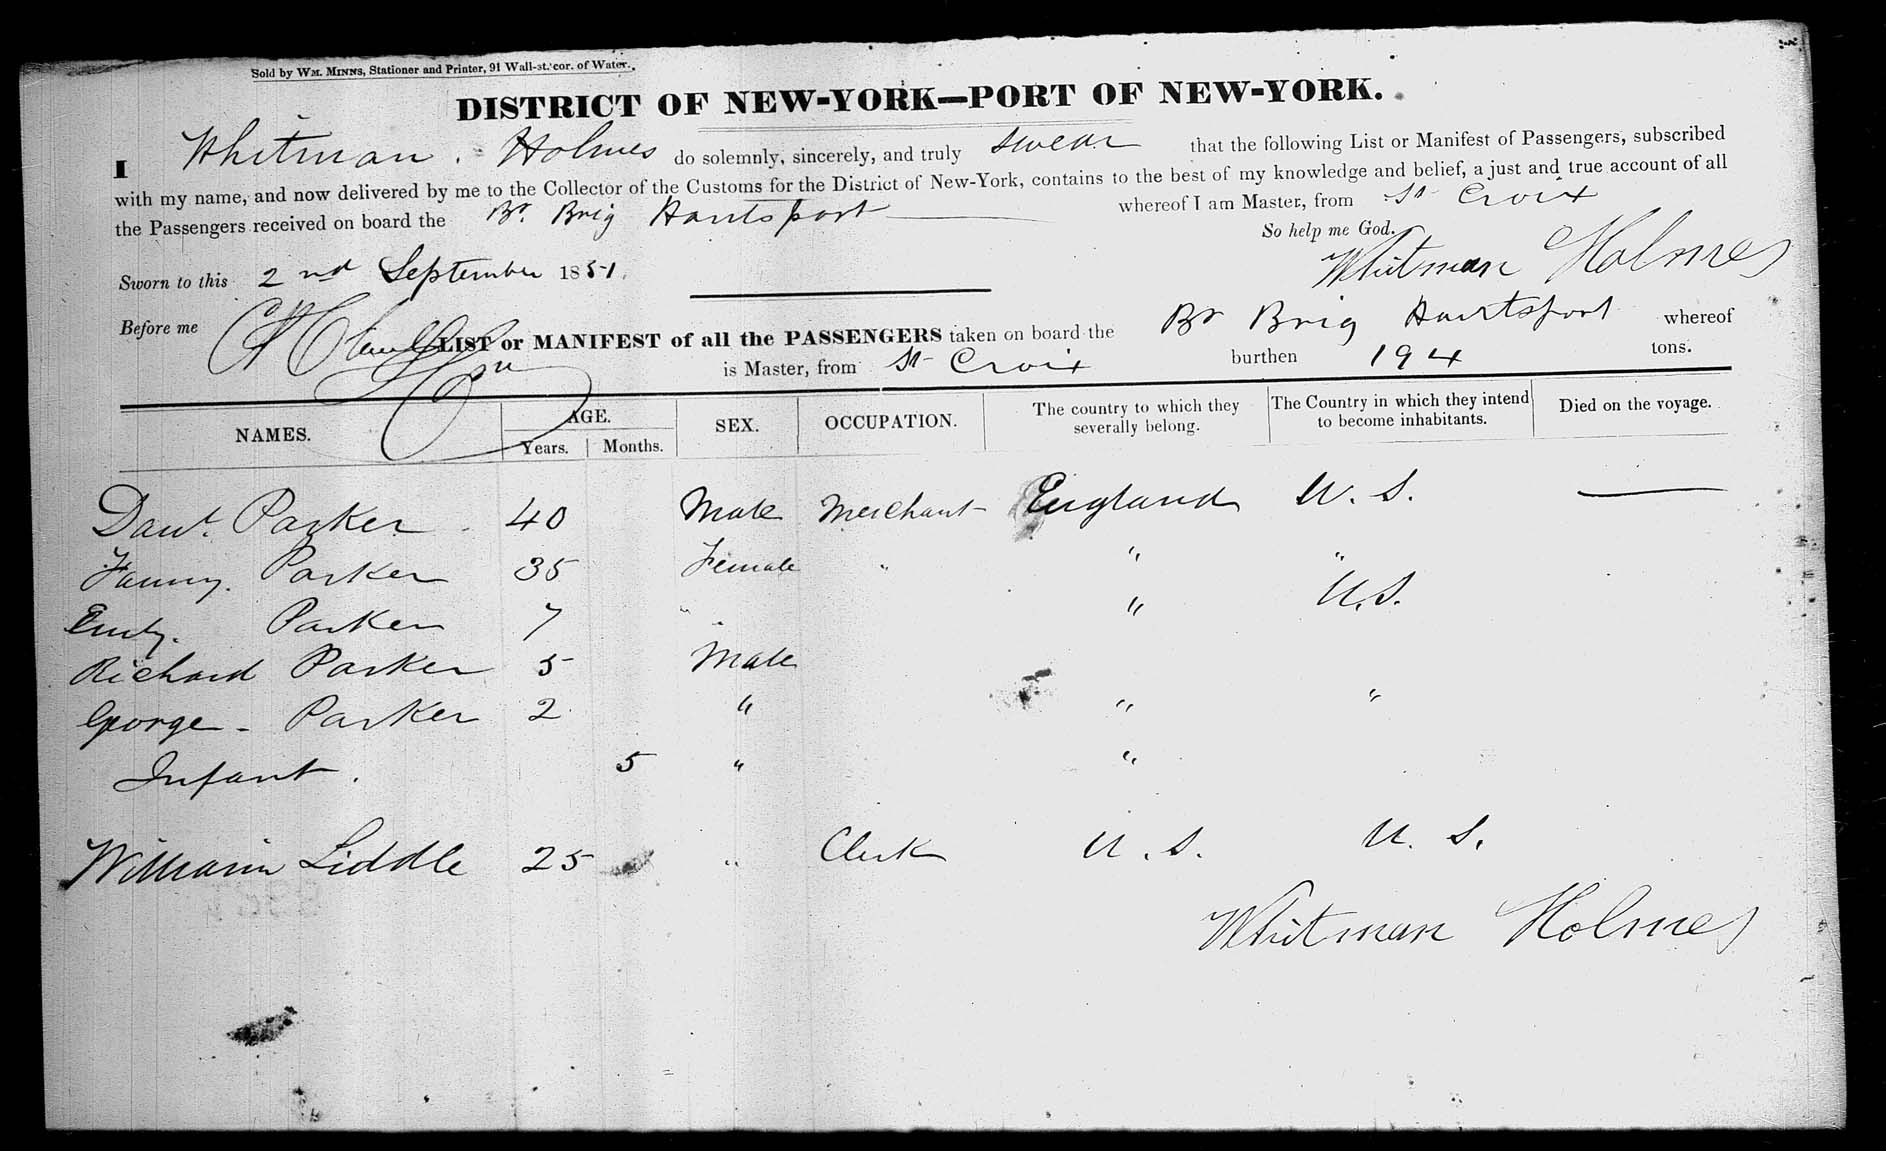 Sold by WM. MINNS, Stationer and Printer, 91 Wall-st. cor. of Water.
DISTRICT OF NEW-YORK—PORT OF NEW-YORK.
I Whitman Holmes do solemnly, sincerely, and truly swear that the following List or Manifest of Passengers, subscribed
with my name, and now delivered by me to the Collector of the Customs for the District of New-York, contains to the best of my knowledge and belief, a just and true account of all
the Passengers received on board the Br. Brig Hantsport whereof I am Master, from St Croix
So help me God.
Sworn to this 2nd September 1851. Whitman Holmes
Before me
LIST or MANIFEST of all the PASSENGERS taken on board the Br Brig Hantsport whereof
is Master, from St Croix burthen 194 tons.
NAMES. AGE. SEX. OCCUPATION. The country to which they severally belong. The Country in which they intend to become inhabitants. Died on the voyage.
Years. Months.
Parker 40 Male Merchant England U. S. —
Fanny. Parker 35 Female " " "
Emly. Parker 7 " " U.S.
Richard Parker 5 Male
George - Parker 2 " " "
Infant. 5 " "
William Liddle 25 " Clerk U. S. U. S.
Whitman Holmes